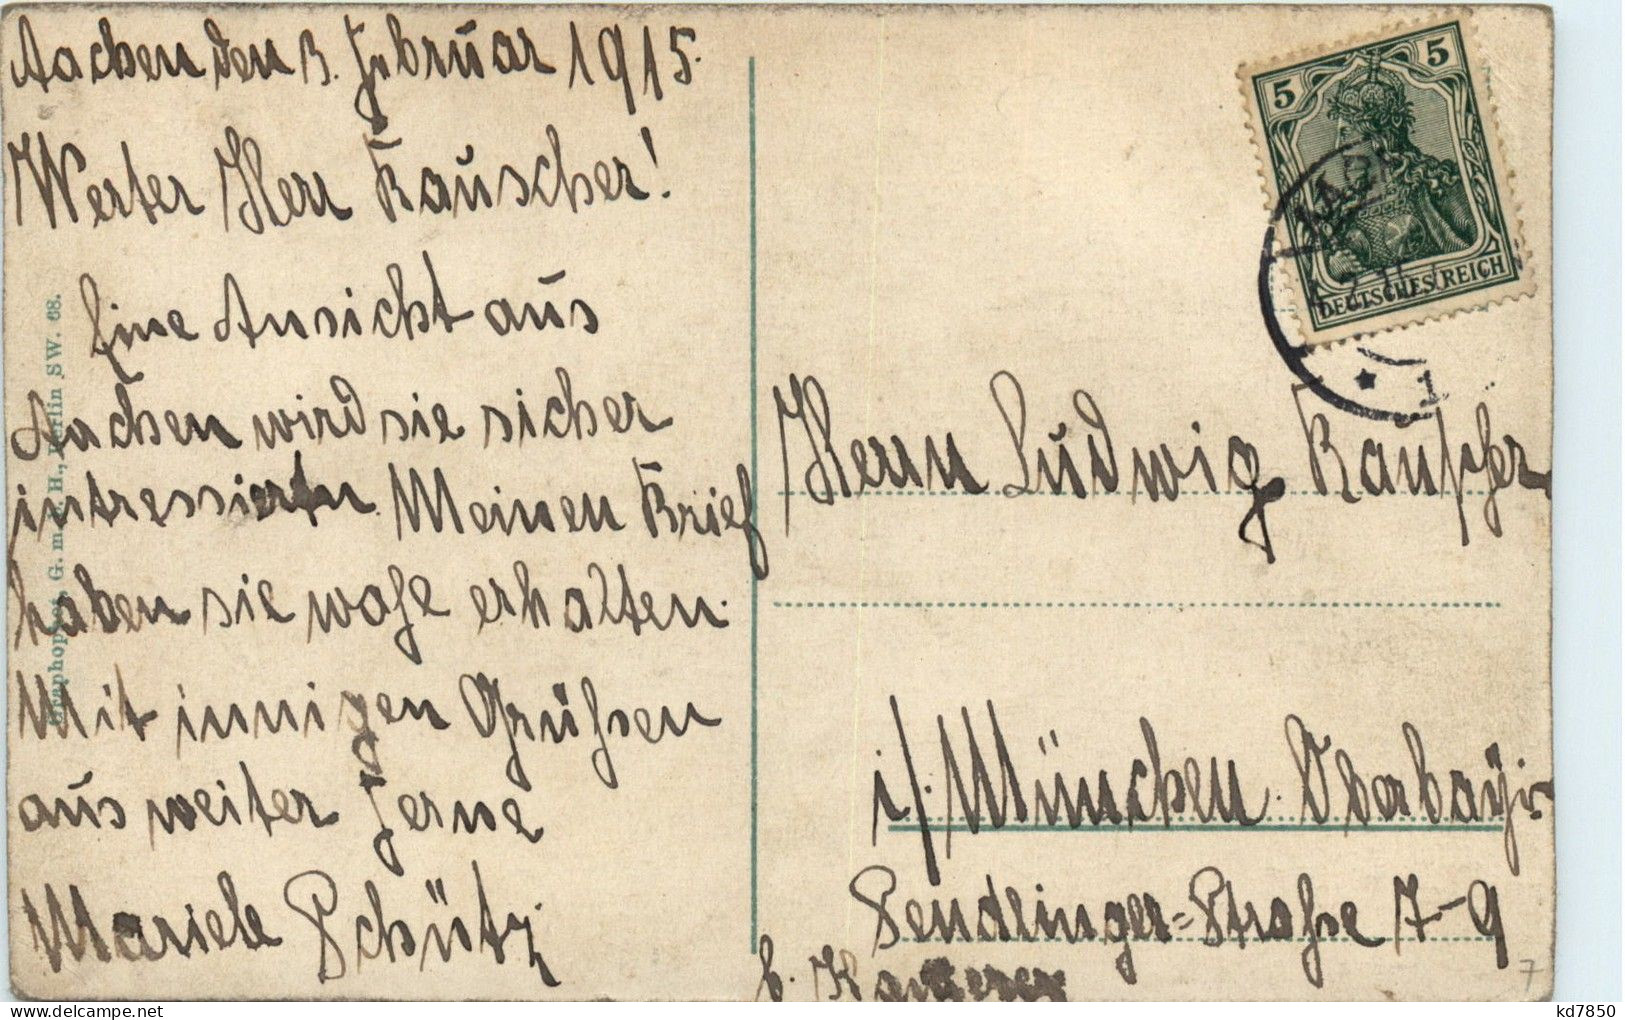 Aachen den 3. Februar 1915.
Werter Herr Rauscher!
Eine Ansicht aus
Aachen wird sie sicher
intressieren. Meinen Brief
haben sie wohl erhalten.
Mit innigen Grüßen
aus weiter Ferne
Mariele Schütz.
Graphophot G. m. b. H., Berlin SW. 68.
5 5
DEUTSCHES REICH
AACH
* 1
Herrn Ludwig Rauscher
i/. München. Oberbayr.
Sendlinger=Straße 7-9
b. Kammerer
7
kd7850